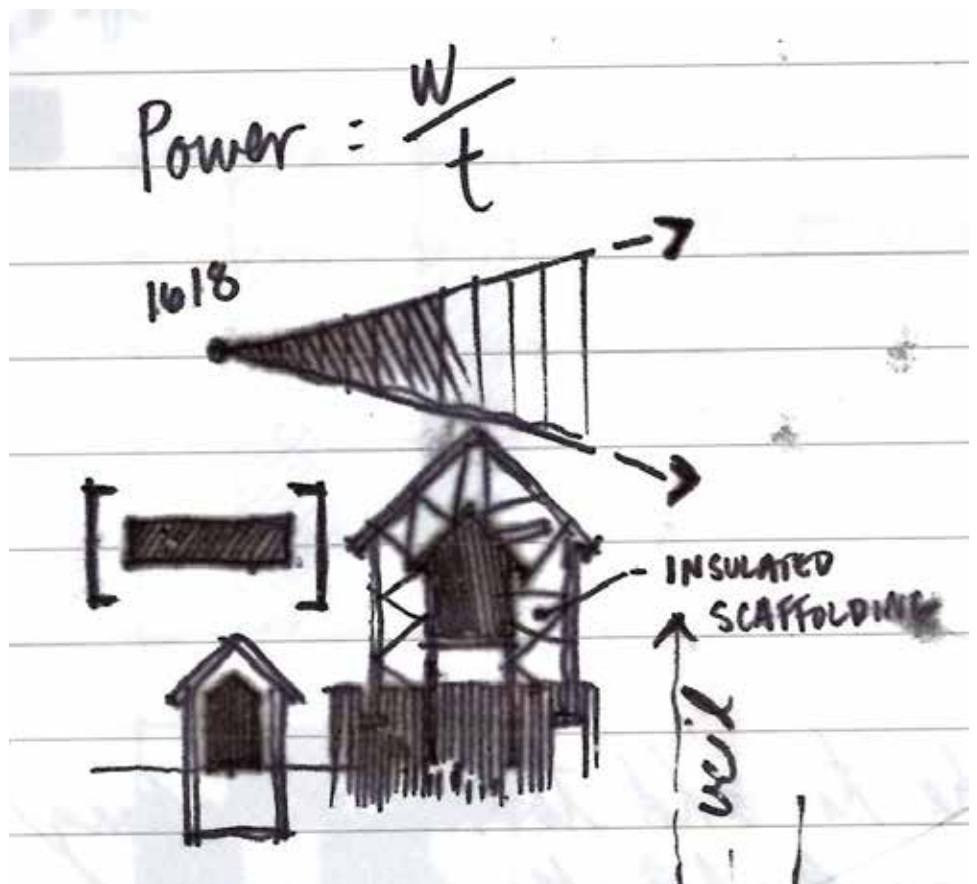 Power = W/t
1618
INSULATED
SCAFFOLDING